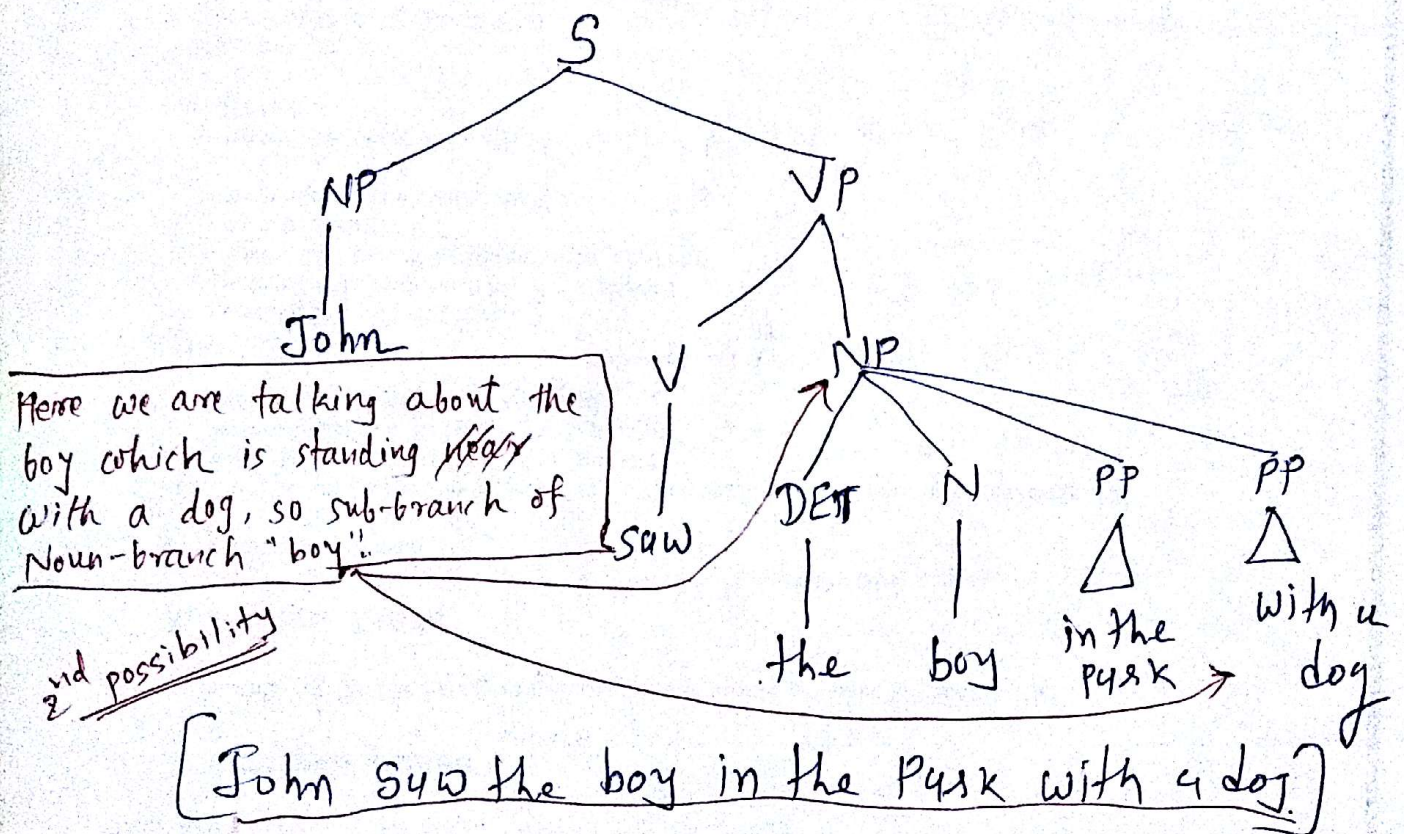 S
NP VP
John
V NP
Here we are talking about the
boy which is standing near
with a dog, so sub-branch of
Noun-branch "boy".
saw
DET N PP PP
the boy in the park with a dog
2nd possibility
[John saw the boy in the Park with a dog.]